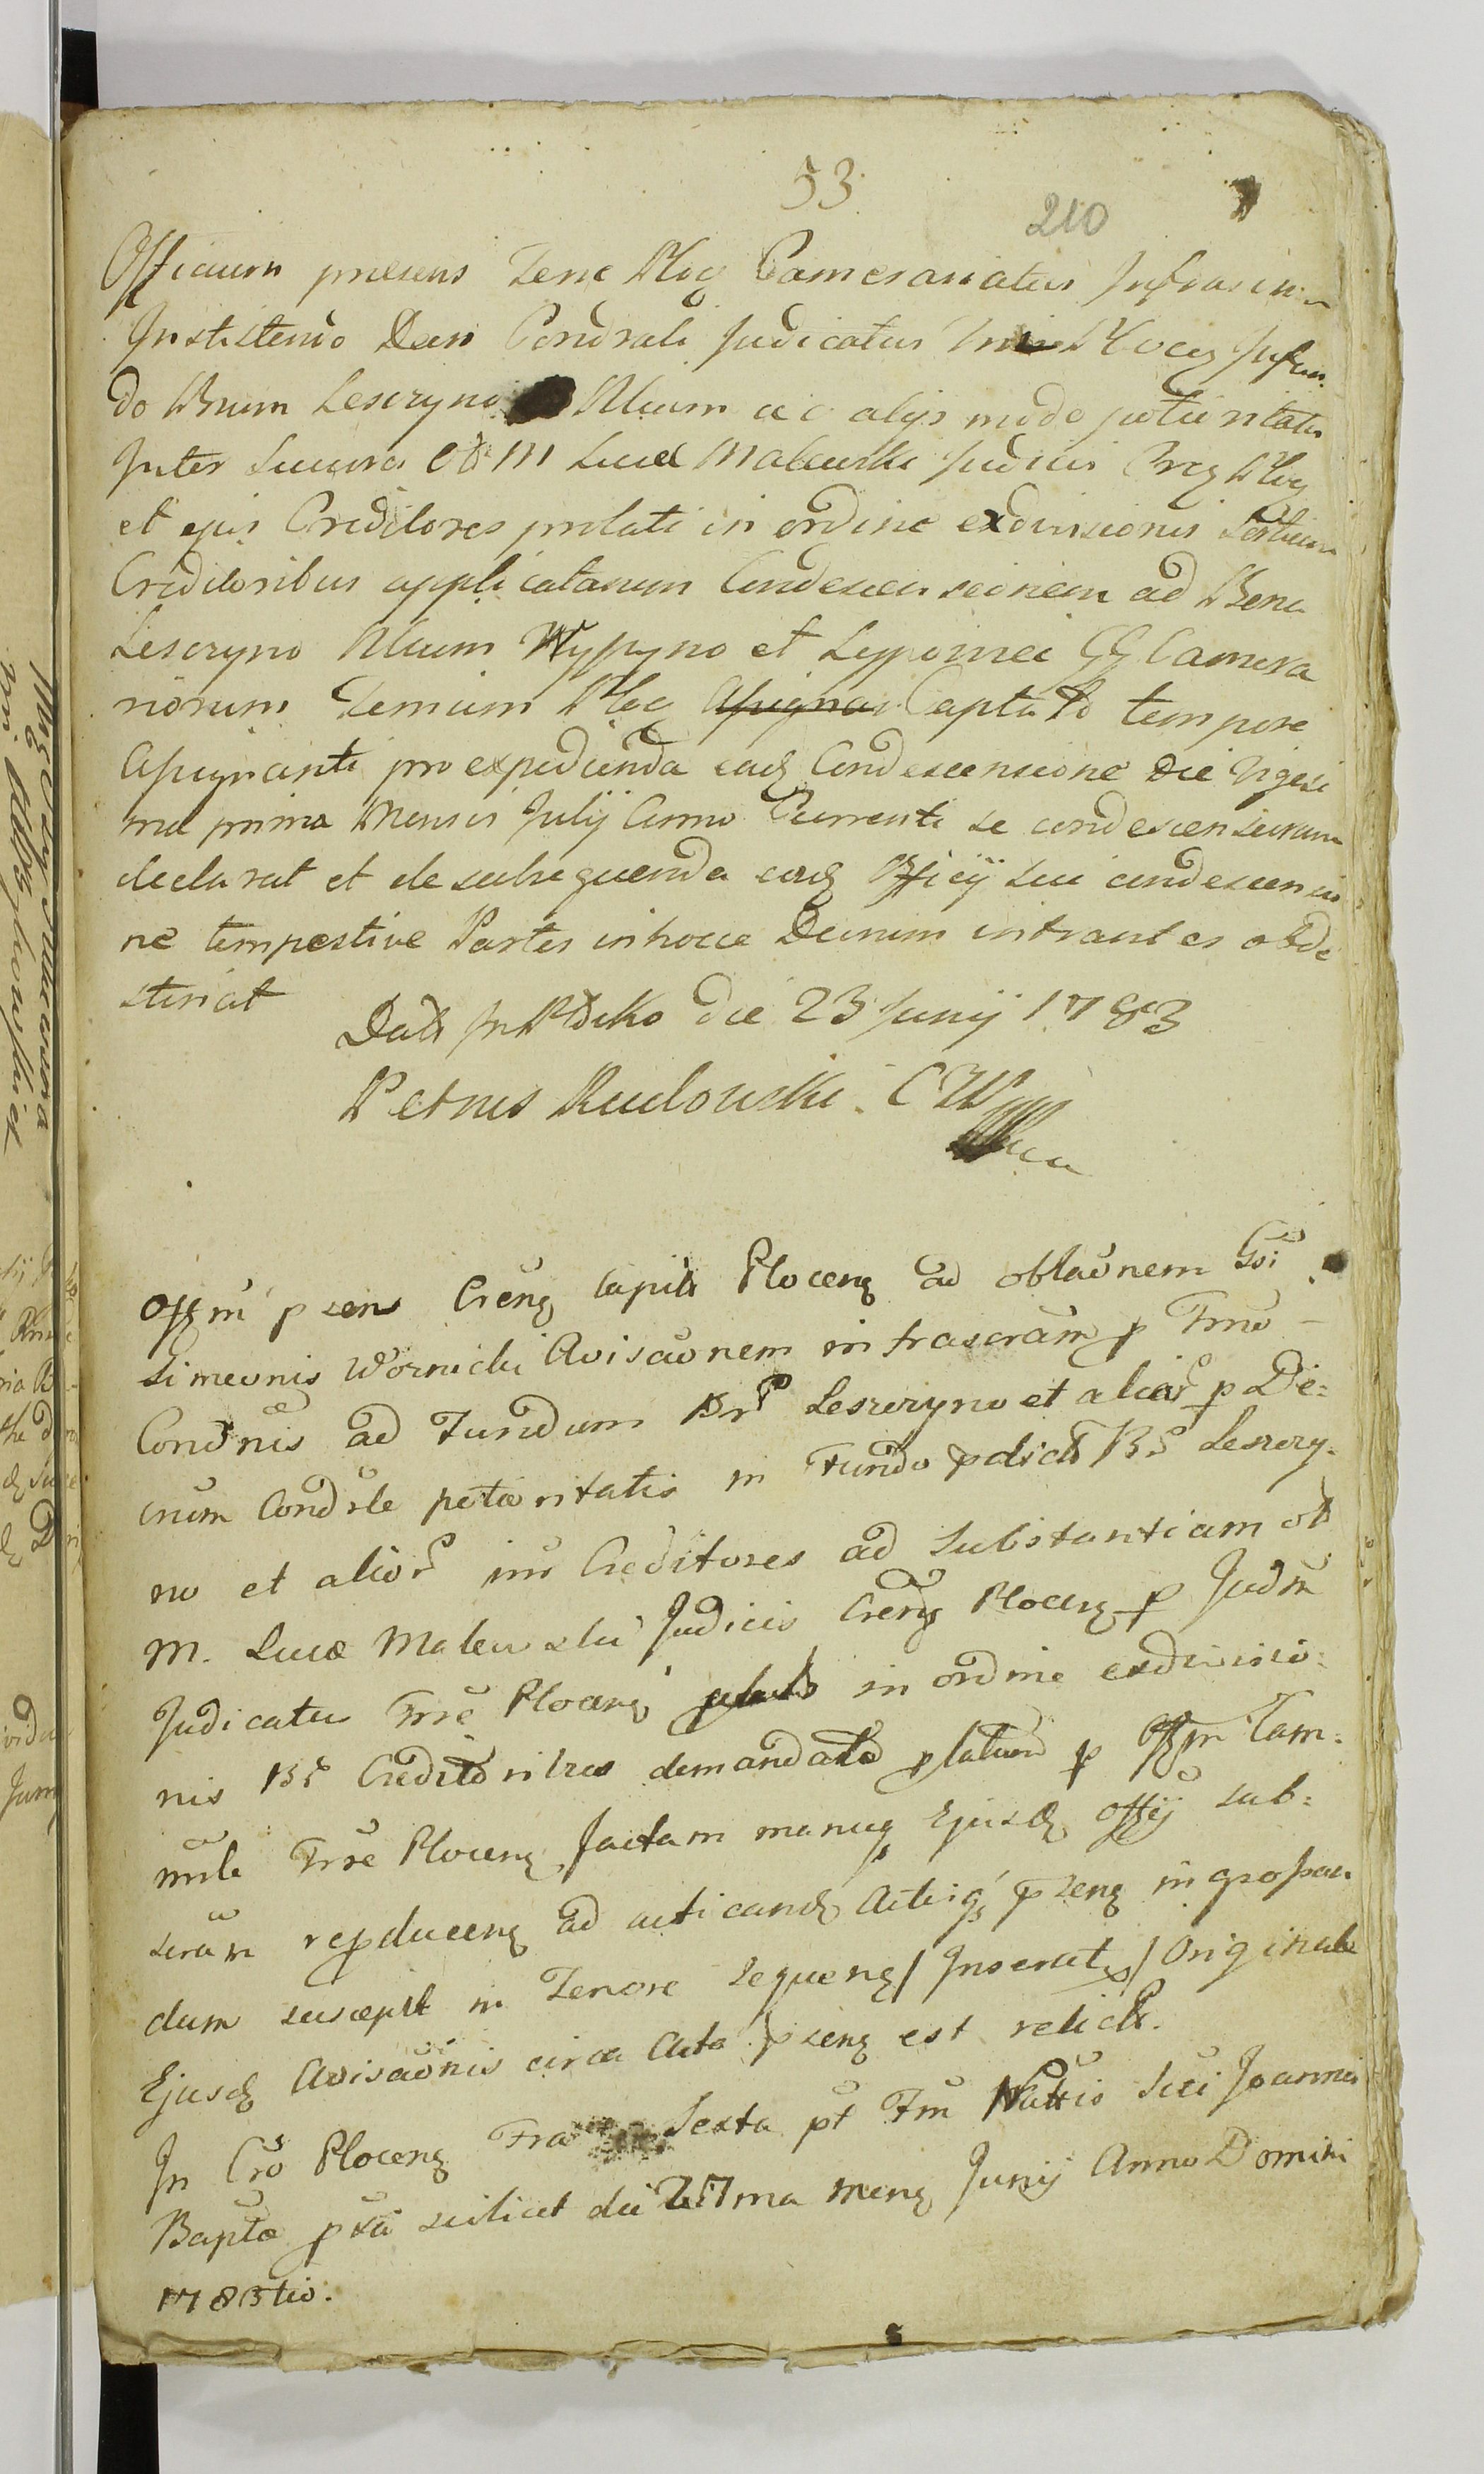 53
210
Officium presens Terre Ploc Camerariatus Infrascr
Insistendo Deer Condrali Judicatus Ploceg Infun
do Bnum Lesczyno Alium ac alys modo potioritatis
Inter Succura Lucæ Maleuski Judicis Ploc
et ejus Creditores prolati in ordine exdivisionis Sortium
Creditoribus applicatarum Condescensionem ad Bona
Lesczyno Alium Wypyno et Lyppomiec GG Camera
riorum Ploc Captato tempore
Assignanti pro expedienda eadz Condescensione die Vigesi
ma prima Mensis Julij Anno Currenti se condescensurum
declarat et de subsequenda eadz Officij sui condescensio
ne tempestive Partes in hocce Decrum intrantes obde
steriat
Datt In Płocko die 23 Junij 1783
Petrus Rudowski CW
Offm psens Crenz capit Plocenz ad oblaonem Gsi
Simeonis Wornicki Avisaonem infrascram p Trno
Condnis ad Fundum Br Leszczyno et alior p De=
crum Condrle potioritatis in Fundo pdict Br Leszczy=
no et alior inr Creditores ad Substantiam ob
M. Lucæ Maleuski Judicis Crenz Plocenz p Judm
Judicatu Trre Plocenz in ordine exdivisio=
nis Br Creditoribus demandato platum p Offm Cam=
rrile Trre Plocenz factam manuq Ejusdz Offij sub=
scram reproducenz ad acticandz Actisq psenz ingrossan
dum suscepit in Tenore sequenz / Inserat / Originale
Ejusdz Avisaonis circa Acta psenz est relict.
In Cro Plocenz Fra Sexta pt Fm Nattis Scti Joannis
Bapta pxa scilicet die 27ma menz Junij Anno Domini
1783tio.